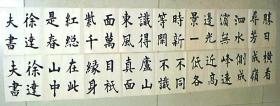 勝日
尋芳
泗水
濱無
邊光
景一
時新
等閒
識得
東風
面萬
紫千
紅總
是春
徐達
夫書
橫看
成嶺
側成
峰遠
近高
低各
不同
不識
廬山
真面
目只
緣身
在此
山中
徐達
夫書